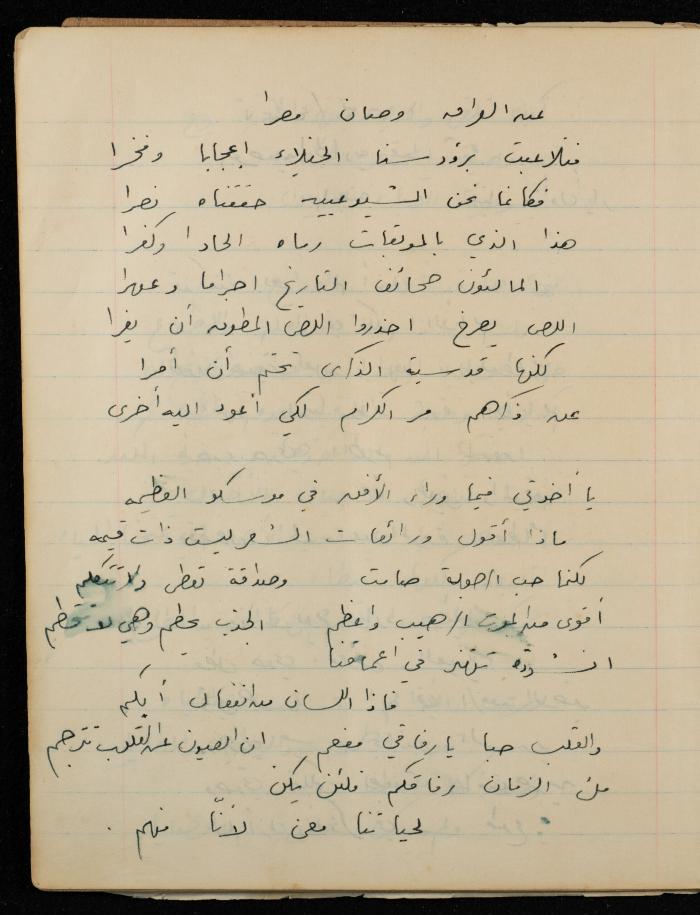 عن العراق وصان مصرا
فتلاعبت برؤوسنا الخيلاء إعجابا وفخرا
فكأنما نحن الشيوعيين حققناه نصرا
هذا الذي بالموبقات رماه الحادا وكفرا
المالئون صحائف التاريخ اجراما وعهرا
اللص يصرخ احذروا اللص المطوق أن يفرا
لكنها قدسية الذكرى تحتم أن أمرا
عن ذكراهم مر الكرام لكي أعود اليه أخرى
يا أخوتي فيما وراء الأفق في موسكو العظيمه
ماذا أقول ورائعات الشعر ليست ذات قيمه
لكنما حب الرجولة صامت وصداقة تعطى ولا تتكلم
أقوى من الموت الرهيب واعظم الحزب يحطم وهي لا تتحطم
انشودة تهتز في اعماقنا
فاذا اللسان من انفعال أبكم
والقلب حبا يا رفاقي مفعم ان العيون عن القلوب تترجم
ملك الزمان رفاقكم فلئن يكن
لحياتنا معنى لأنّا منهم .